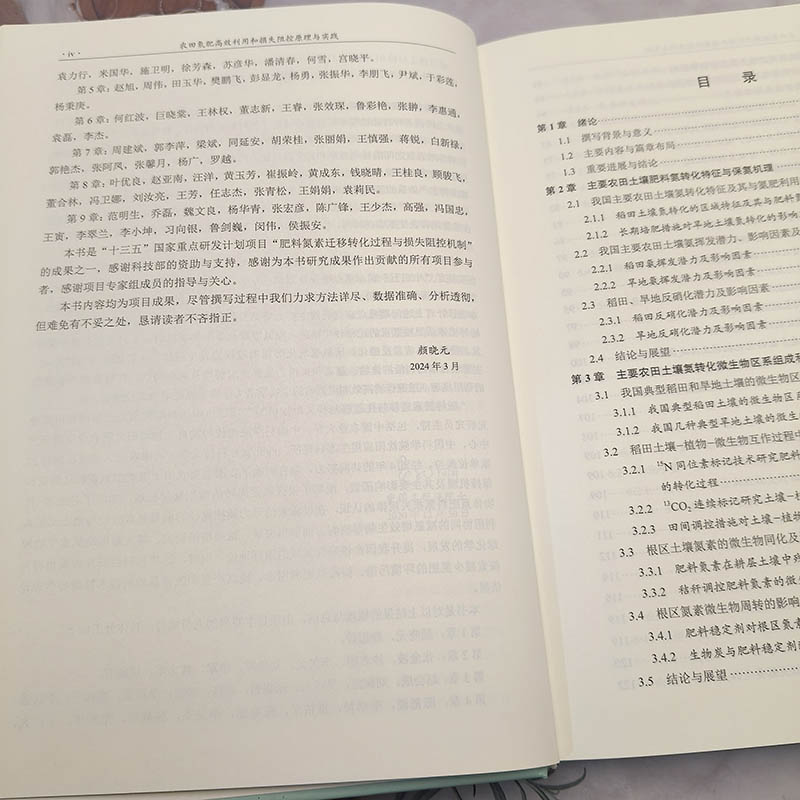 · iv ·
农田氮肥高效利用和损失阻控原理与实践
袁力行，米国华，施卫明，徐芳森，苏彦华，潘清春，何雪，宫晓平。
第5章：赵旭，周伟，田玉华，樊鹏飞，彭显龙，杨勇，张振华，李朋飞，尹斌，于彩莲，
杨秉庚。
第6章：何红波，巨晓棠，王林权，董志新，王睿，张效琛，鲁彩艳，张翀，李惠通，
袁磊，李杰。
第7章：周建斌，郭李萍，梁斌，同延安，胡荣桂，张丽娟，王慎强，蒋锐，白新禄，
郭艳杰，张阿凤，张馨月，杨广，罗越。
第8章：叶优良，赵亚南，汪洋，黄玉芳，崔振岭，黄成东，钱晓晴，王桂良，顾骏飞，
董合林，冯卫娜，刘汝亮，王芳，任志杰，张青松，王娟娟，袁莉民。
第9章：范明生，乔磊，魏文良，杨华青，张宏彦，陈广锋，王少杰，高强，冯国忠，
王寅，李翠兰，李小坤，习向银，鲁剑巍，闵伟，侯振安。
本书是“十三五”国家重点研发计划项目“肥料氮素迁移转化过程与损失阻控机制”
的成果之一，感谢科技部的资助与支持，感谢为本书研究成果作出贡献的所有项目参与
者，感谢项目专家组成员的指导与关心。
本书内容均为项目成果，尽管撰写过程中我们力求方法详尽、数据准确、分析透彻，
但难免有不妥之处，恳请读者不吝指正。
颜晓元
2024年3月
目 录
第1章 绪论
1.1 撰写背景与意义
1.2 主要内容与篇章布局
1.3 重要进展与结论
第2章 主要农田土壤肥料氮转化特征与保氮机理
2.1 我国主要农田土壤氮转化特征及其与氮肥利用
2.1.1 稻田土壤氮转化的区域特征及其与肥料氮
2.1.2 长期培肥措施对旱地土壤氮转化的影
2.2 我国主要农田土壤氨挥发潜力、影响因素及
2.2.1 稻田氨挥发潜力及影响因素
2.2.2 旱地氨挥发潜力及影响因素
2.3 稻田、旱地反硝化潜力及影响因素
2.3.1 稻田反硝化潜力及影响因素
2.3.2 旱地反硝化潜力及影响因素
2.4 结论与展望
第3章 主要农田土壤氮转化微生物区系组成和
3.1 我国典型稻田和旱地土壤的微生物区
3.1.1 我国典型稻田土壤的微生物区系
3.1.2 我国几种典型旱地土壤的微生
3.2 稻田土壤-植物-微生物互作过程中
3.2.1 ¹⁵N同位素标记技术研究肥料
的转化过程
3.2.2 ¹³CO₂连续标记研究土壤-植
3.2.3 田间调控措施对土壤-植物
3.3 根区土壤氮素的微生物同化及
3.3.1 肥料氮素在耕层土壤中
3.3.2 秸秆调控肥料氮素的微
3.4 根区氮素微生物周转的影响
3.4.1 肥料稳定剂对根区氮素
3.4.2 生物炭与肥料稳定剂
3.5 结论与展望